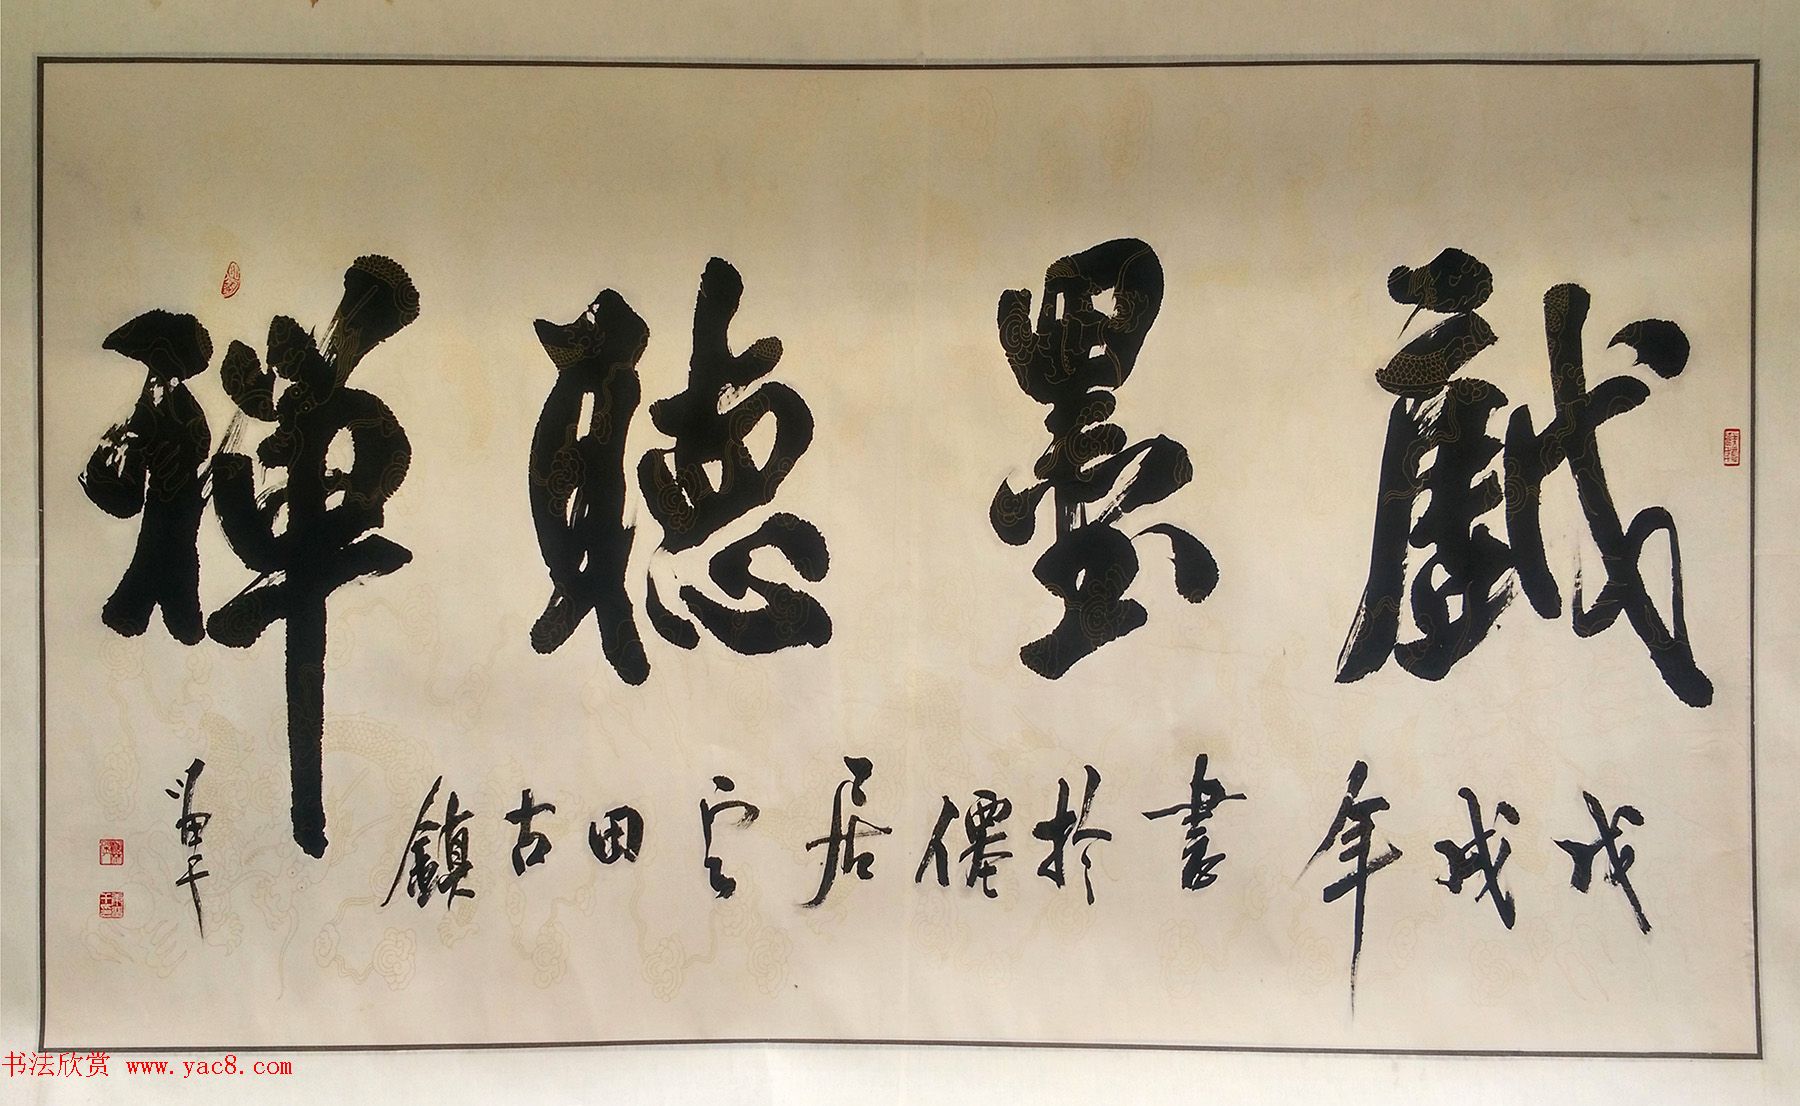 戲墨聽禪
戊戌年書於僊居雲田古鎮
书法欣赏 www.yac8.com